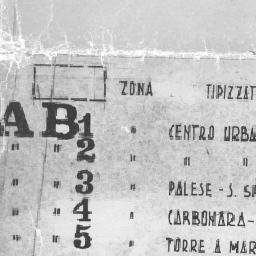 ZONA TIPIZZAT
A B1 " CENTRO URBA
" " 2 " "
" " 3 " PALESE - S. SP
" " 4 " CARBONARA -
" " 5 " TORRE A MAR